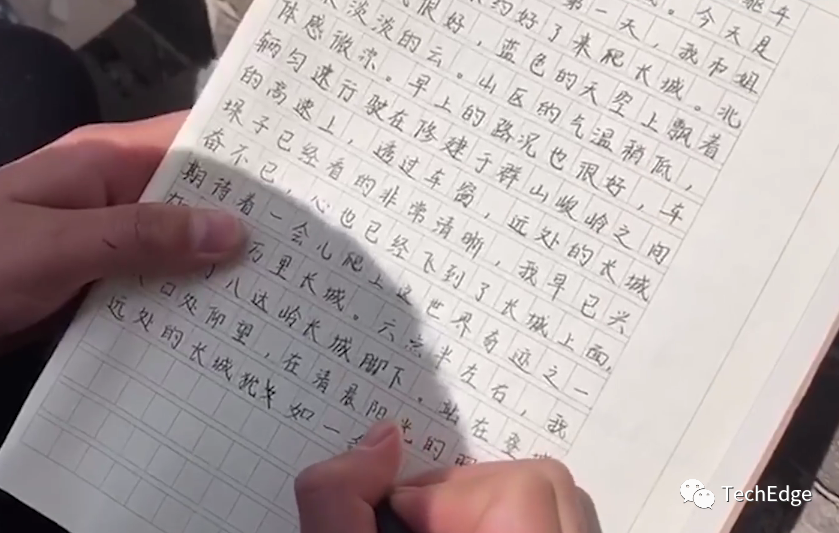 驱车
。今天是
第一天，我和姐
约好了来爬长城。北
很好，蓝色的天空上飘着
淡淡的云。山区的气温稍低，
体感微凉。早上的路况也很好，车
辆匀速行驶在修建于群山峻岭之间
的高速上，透过车窗，远处的长城
垛子已经看的非常清晰，我早已兴
奋不已，心也已经飞到了长城上面，
期待着一会儿爬上这世界奇迹之一
万里长城。六点半左右，我
了八达岭长城脚下。站在登城
口处仰望，在清晨阳光的
远处的长城犹如一
TechEdge